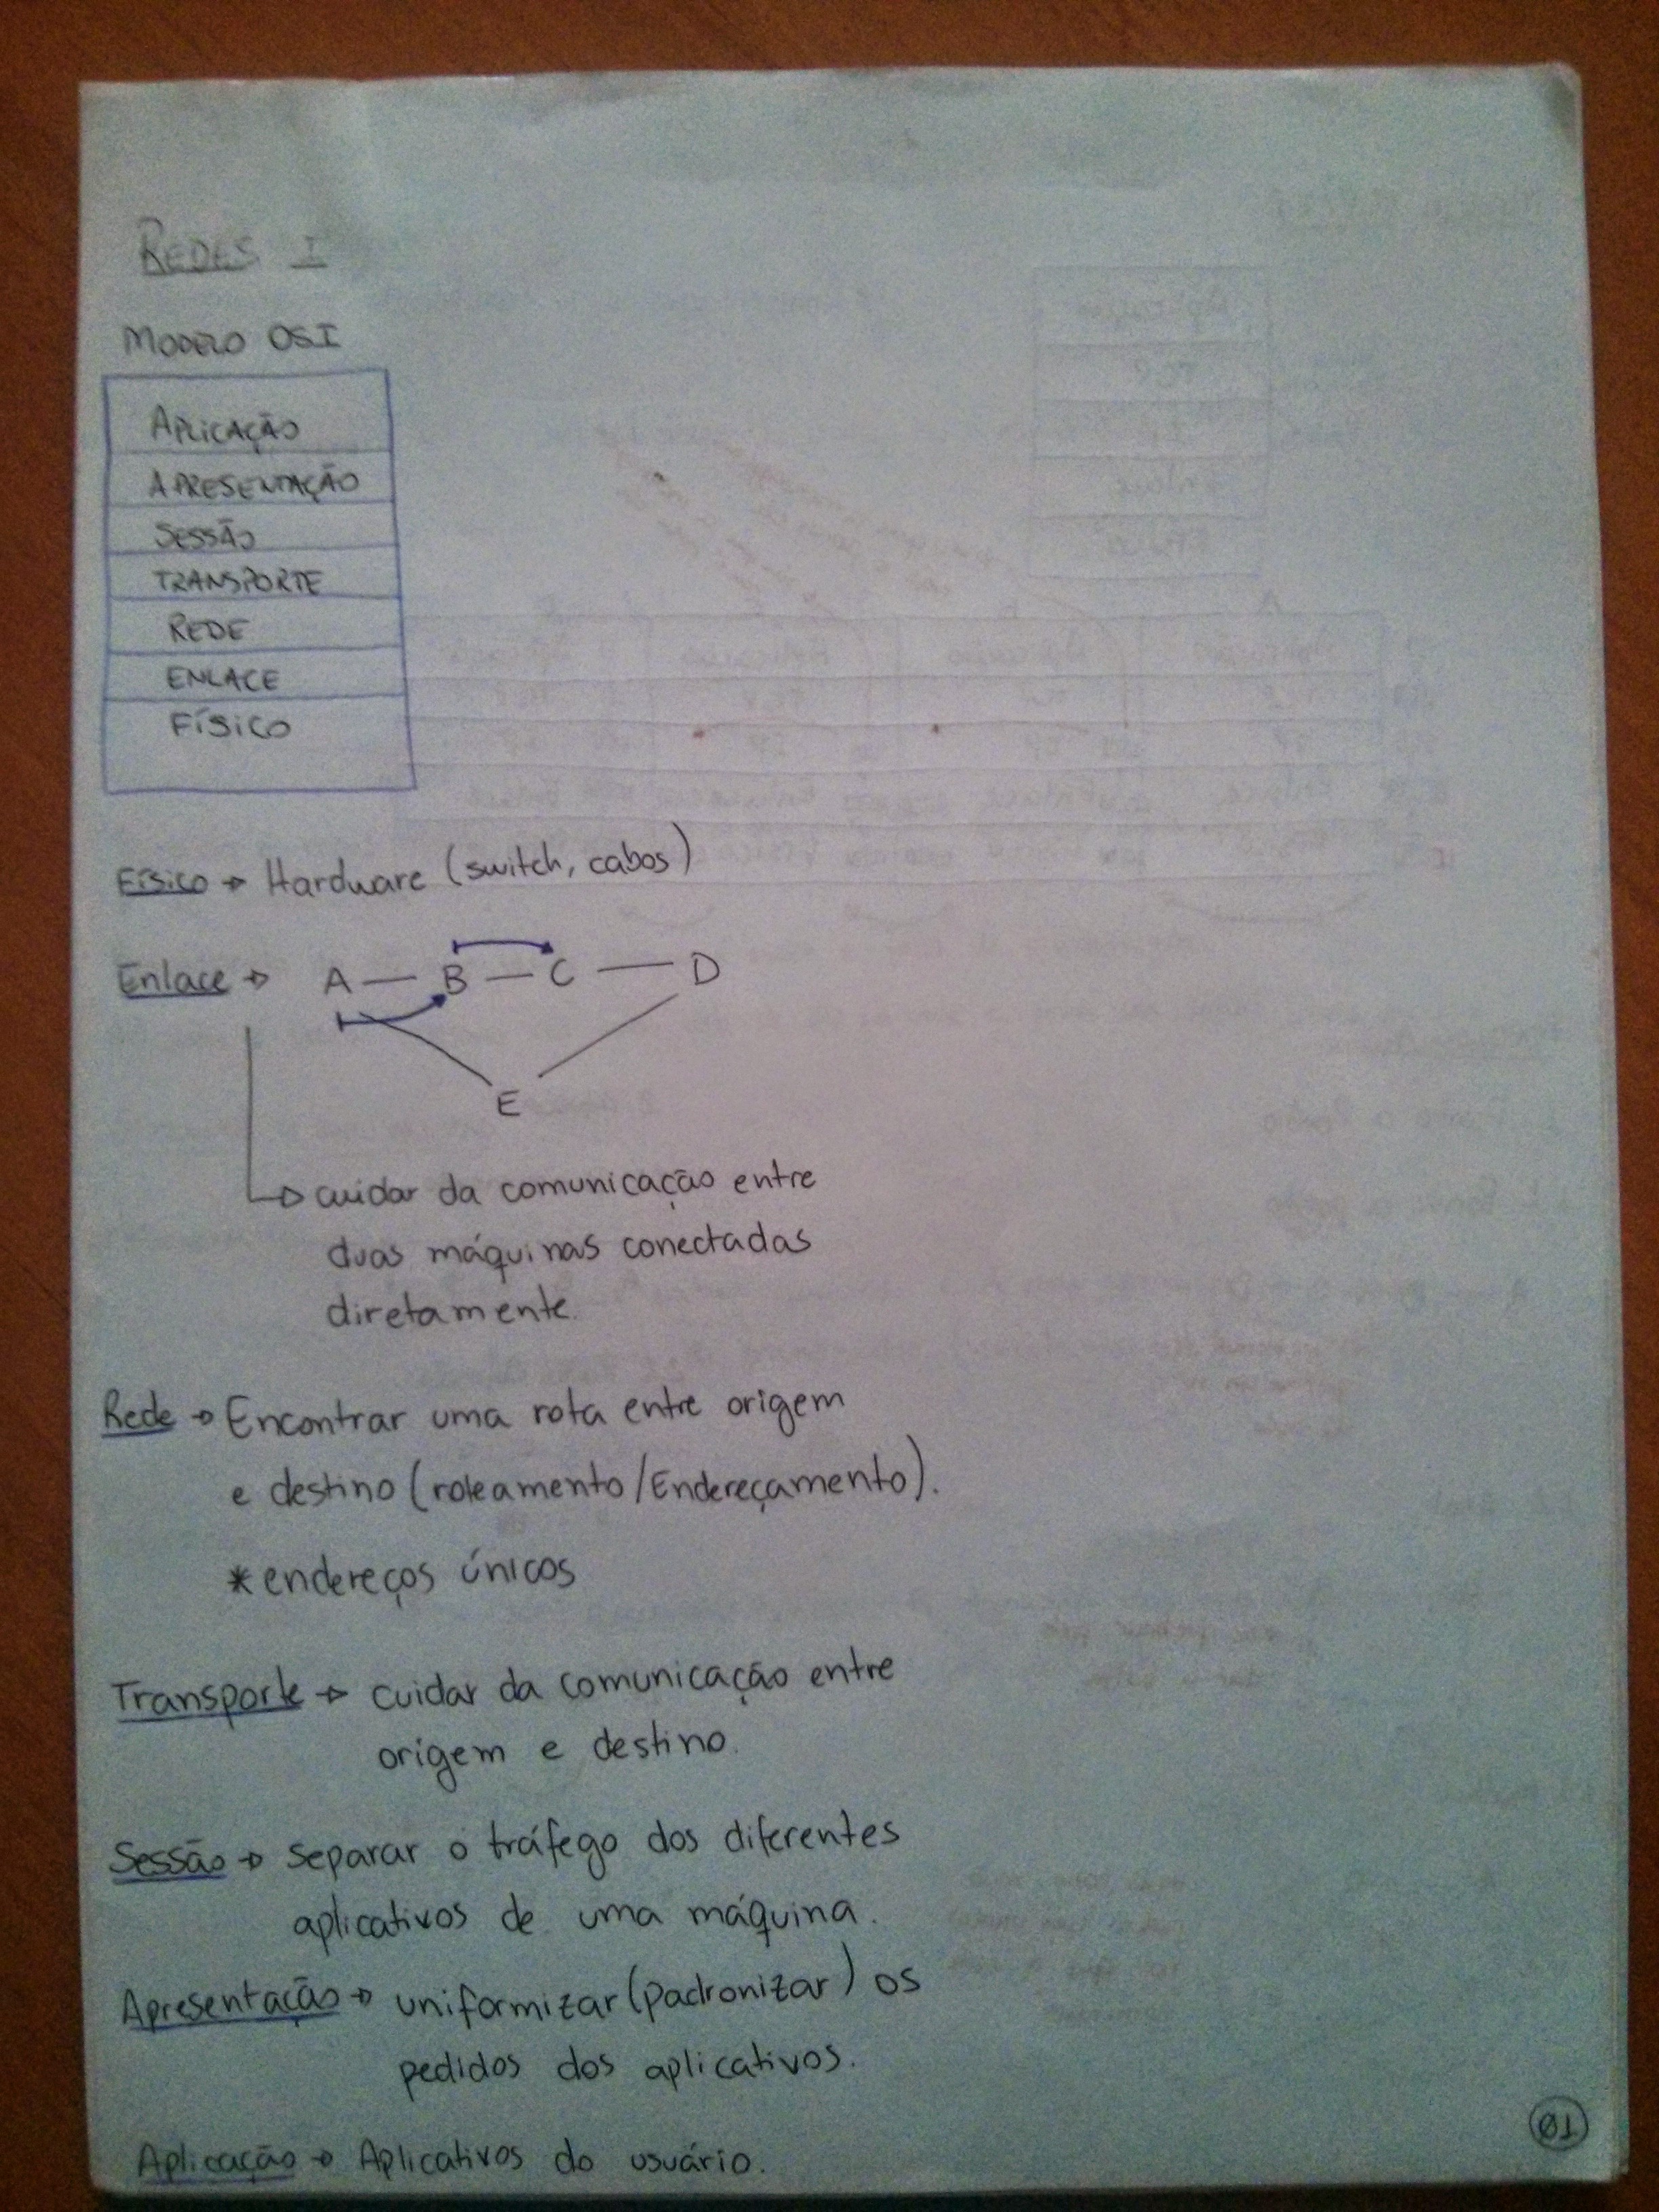 REDES I
MODELO OSI
APLICAÇÃO
APRESENTAÇÃO
SESSÃO
TRANSPORTE
REDE
ENLACE
FÍSICO
Físico → Hardware (switch, cabos)
Enlace → A — B — C — D
E
cuidar da comunicação entre
duas máquinas conectadas
diretamente.
Rede → Encontrar uma rota entre origem
e destino (roteamento/Endereçamento).
*endereços únicos
Transporte → cuidar da comunicação entre
origem e destino.
Sessão → separar o tráfego dos diferentes
aplicativos de uma máquina.
Apresentação → uniformizar (padronizar) os
pedidos dos aplicativos.
Aplicação → Aplicativos do usuário.
01